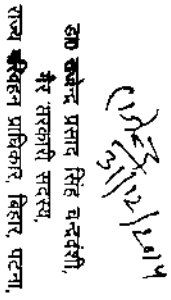 31/12/2014
प्रसाद सिंह चन्द्रवंशी,
गैर सरकारी सदस्य,
राज्य परिवहन प्राधिकार, बिहार, पटना.